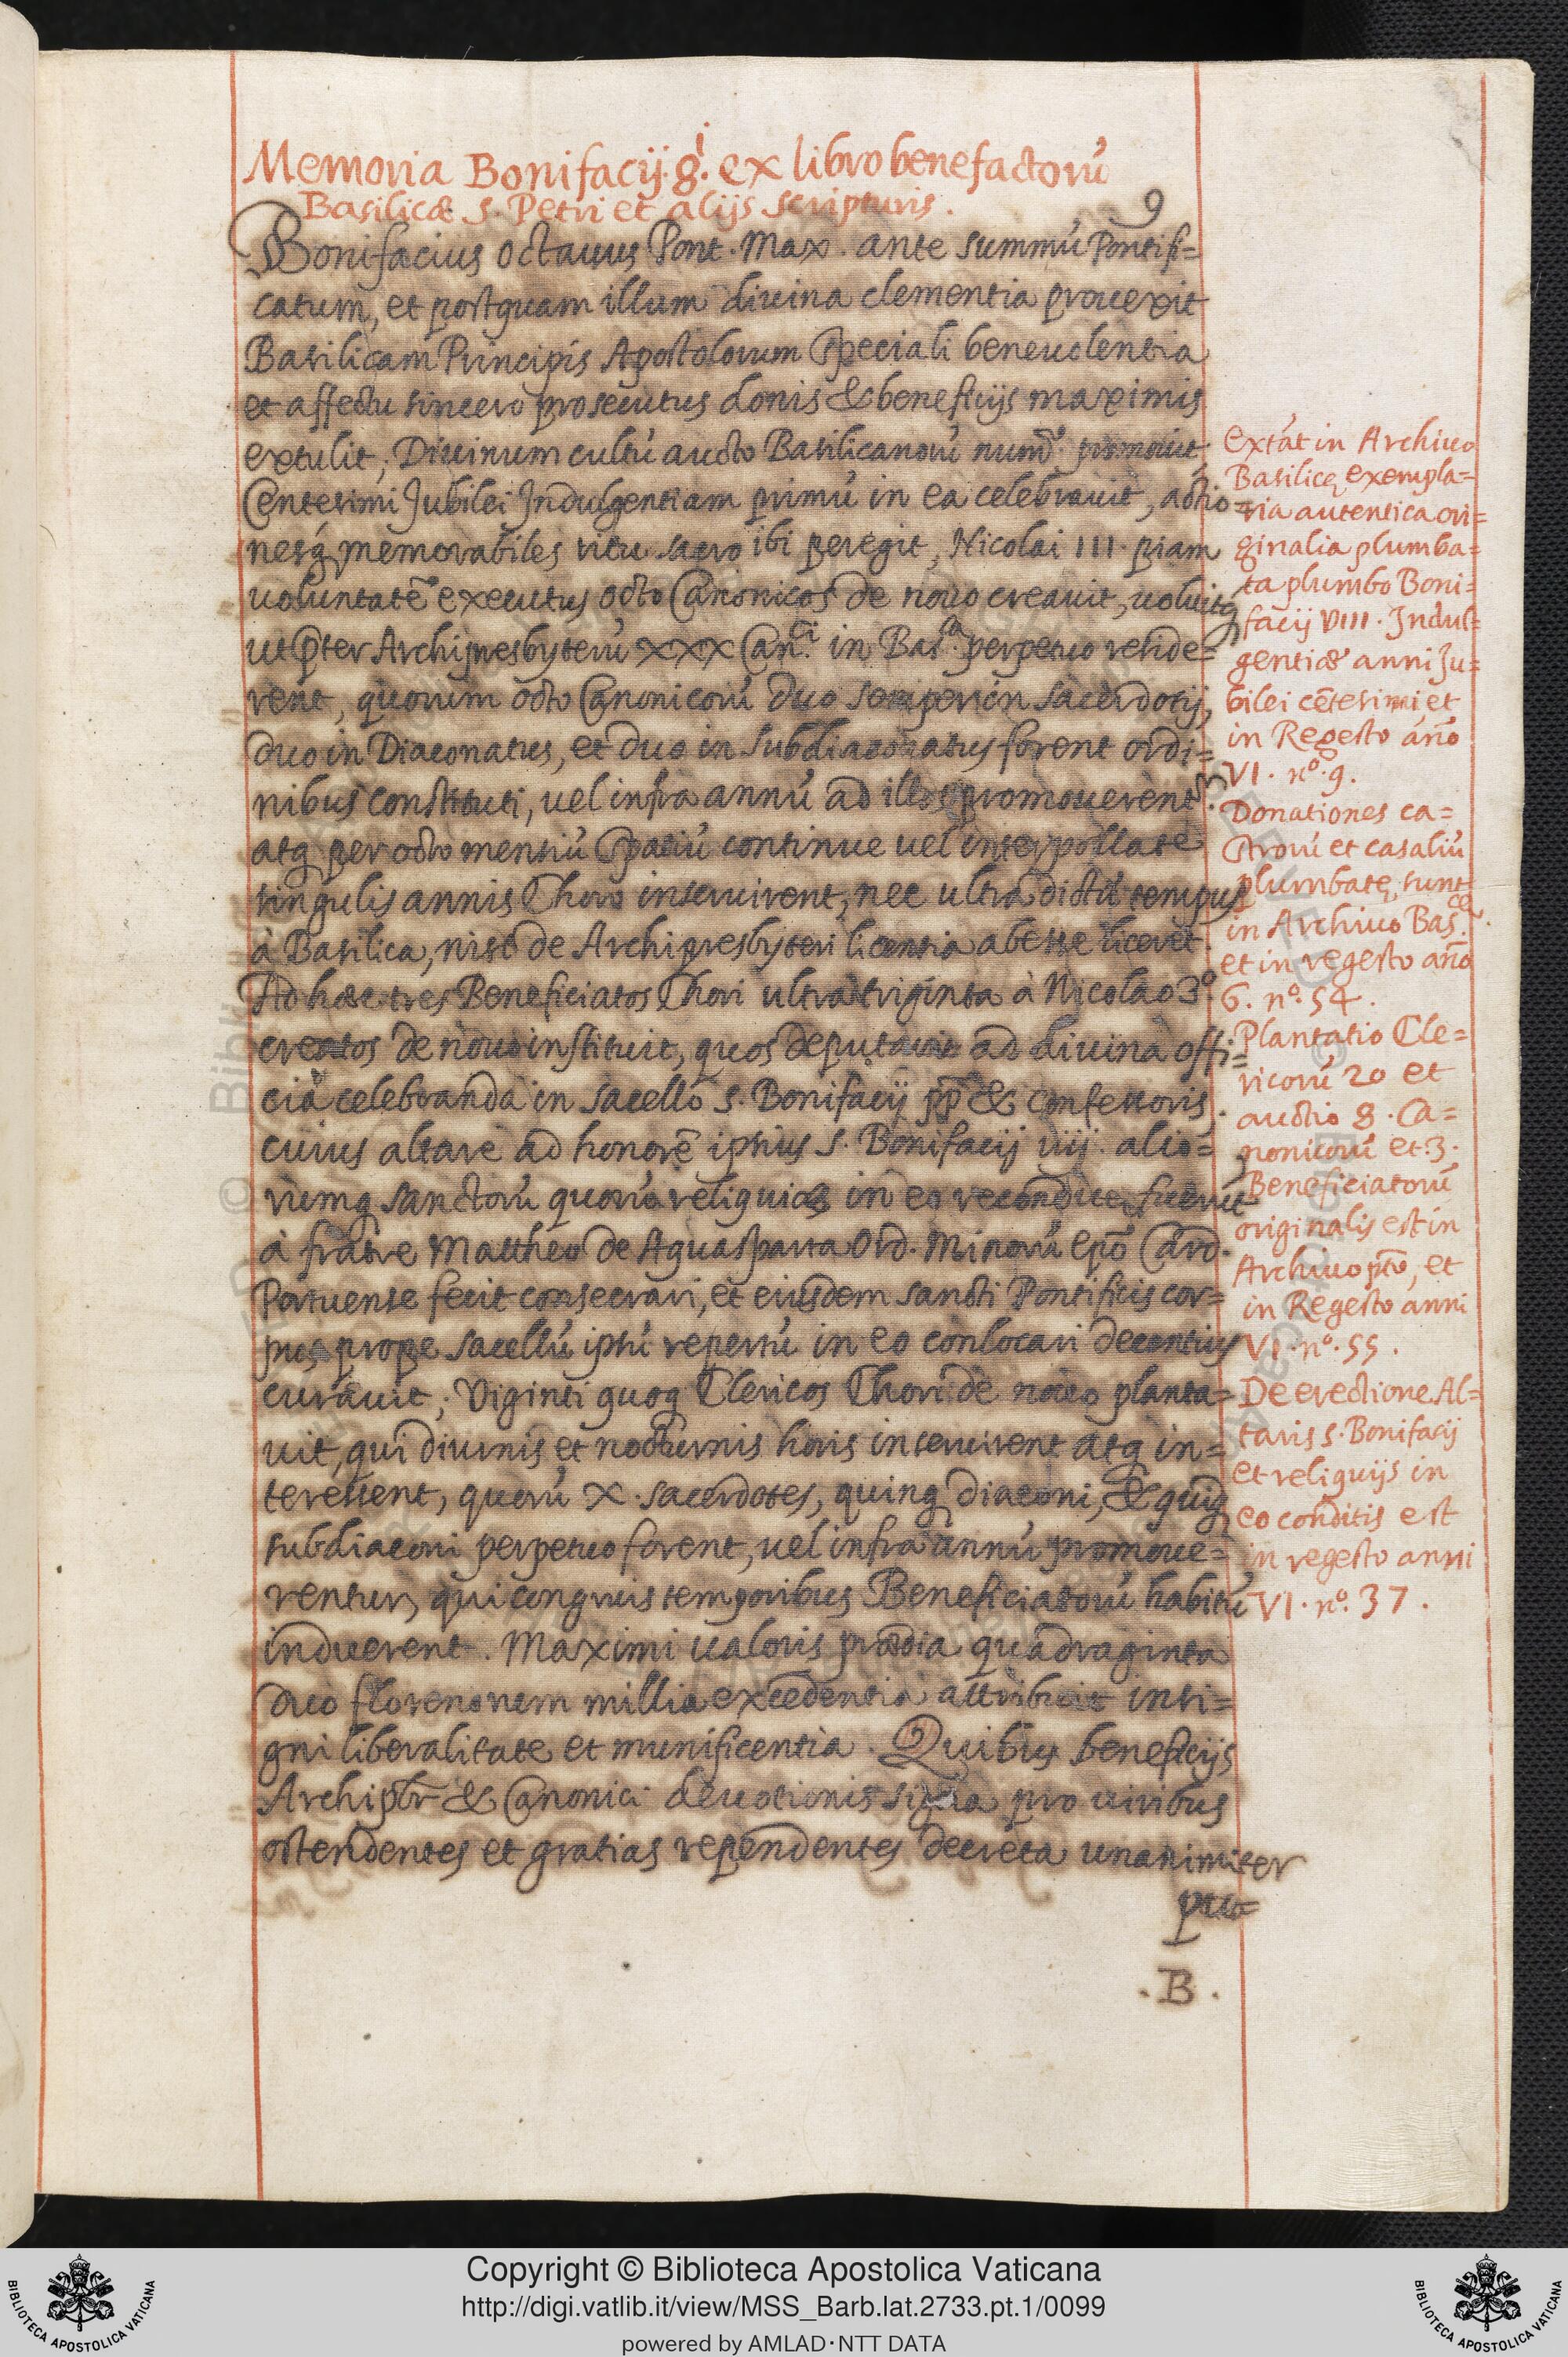 Memoria Bonifacij. 8.i ex libro benefactorũ
Basilicæ S. Petri et alijs scripturis.
9
Bonifacius octauus Pont. Max. ante summũ Pontifi=
catum, et postquam illum diuina clementia prouexit
Basilicam Principis Apostolorum speciali beneuolentia
et affectu sincero prosecutus donis & beneficijs maximis
extulit; Diuinum cultũ aucto Basilicanorũ numº. promouit
Centesimi Jubilei Indulgentiam primũ in ea celebrauit, actio=
nesq́ memorabiles ritu sacro ibi peregit, Nicolai III. piam
uoluntatẽ executus octo Canonicos de nouo creauit, uoluitq
ut p̃ter Archipresbyterũ xxx Can.ci in Bas.ca perpetuo reside=
rent, quorum octo Canonicorũ duo semper in sacerdotij,
duo in Diaconatus, et duo in subdiaconatus forent ordi=
nibus constituti, uel infra annũ ad illos promouerent.
atq per octo mensiũ spatiũ continue uel interpollate
singulis annis Choro inseruirent, nec ultra dictũ tempus
à Basilica, nisi de Archipresbyteri licentia abesse liceret.
Ad hæc tres Beneficiatos Chori ultra triginta à Nicolao 3º
creatos de nouo instituit, quos deputauit ad diuina offi=
cia celebranda in sacello S. Bonifacij pp̃ & confessoris.
cuius altare ad honorẽ ipsius S. Bonifacij iiij. alio=
rumq sanctorũ quorũ reliquiæ in eo reconditę fuerũt
à fratre Mattheo de Aquasparta Ord. Minorũ ep̃o Card.
Portuense fecit consecrari, et eiusdem sancti Pontificis cor=
pus prope sacellũ ipsũ repertũ in eo conlocari decentius
curauit; Viginti quoq Clericos Chori de nouo planta=
uit, qui diurnis et nocturnis horis inseruirent atq in=
teressent, quorũ x. sacerdotes, quinq diaconi, & quinq
subdiaconi perpetuo forent, uel infra annũ promoue=
rentur, qui congruis temporibus Beneficiatorũ habitũ
induerent. Maximi ualoris prædia quadraginta
duo florenorum millia excedentia attribuit insi=
gni liberalitate et munificentia. Quibus beneficijs
Archipb̃r & Canonici deuotionis signa pro uiribus
ostendentes et gratias rependentes decreta unanimiter
pro=
.B.
Extãt in Archiuo
Basilicę exempla=
ria autentica ori=
ginalia plumba=
ta plumbo Boni=
facij VIII. Indul=
gentiæ anni Ju=
bilei cẽtesimi et
in Regesto ãno
VI. nº. 9.
Donationes ca=
strorũ et casaliũ
plumbatę sunt
in Archiuo Bas.cæ.
et in regesto ãno
6. nº. 54.
Plantatio Cle=
ricorũ 20 et
auctio 8. Ca=
nonicorũ et. 3.
Beneficiatorũ
originalis est in
Archiuo p̃to, et
in Regesto anni
VI. nº. 55.
De erectione Al=
taris S. Bonifacij
et reliquijs in
eo conditis est
in regesto anni
VI. nº. 37.
BIBLIOTECA APOSTOLICA VATICANA
Copyright © Biblioteca Apostolica Vaticana
http://digi.vatlib.it/view/MSS_Barb.lat.2733.pt.1/0099
powered by AMLAD·NTT DATA
BIBLIOTECA APOSTOLICA VATICANA